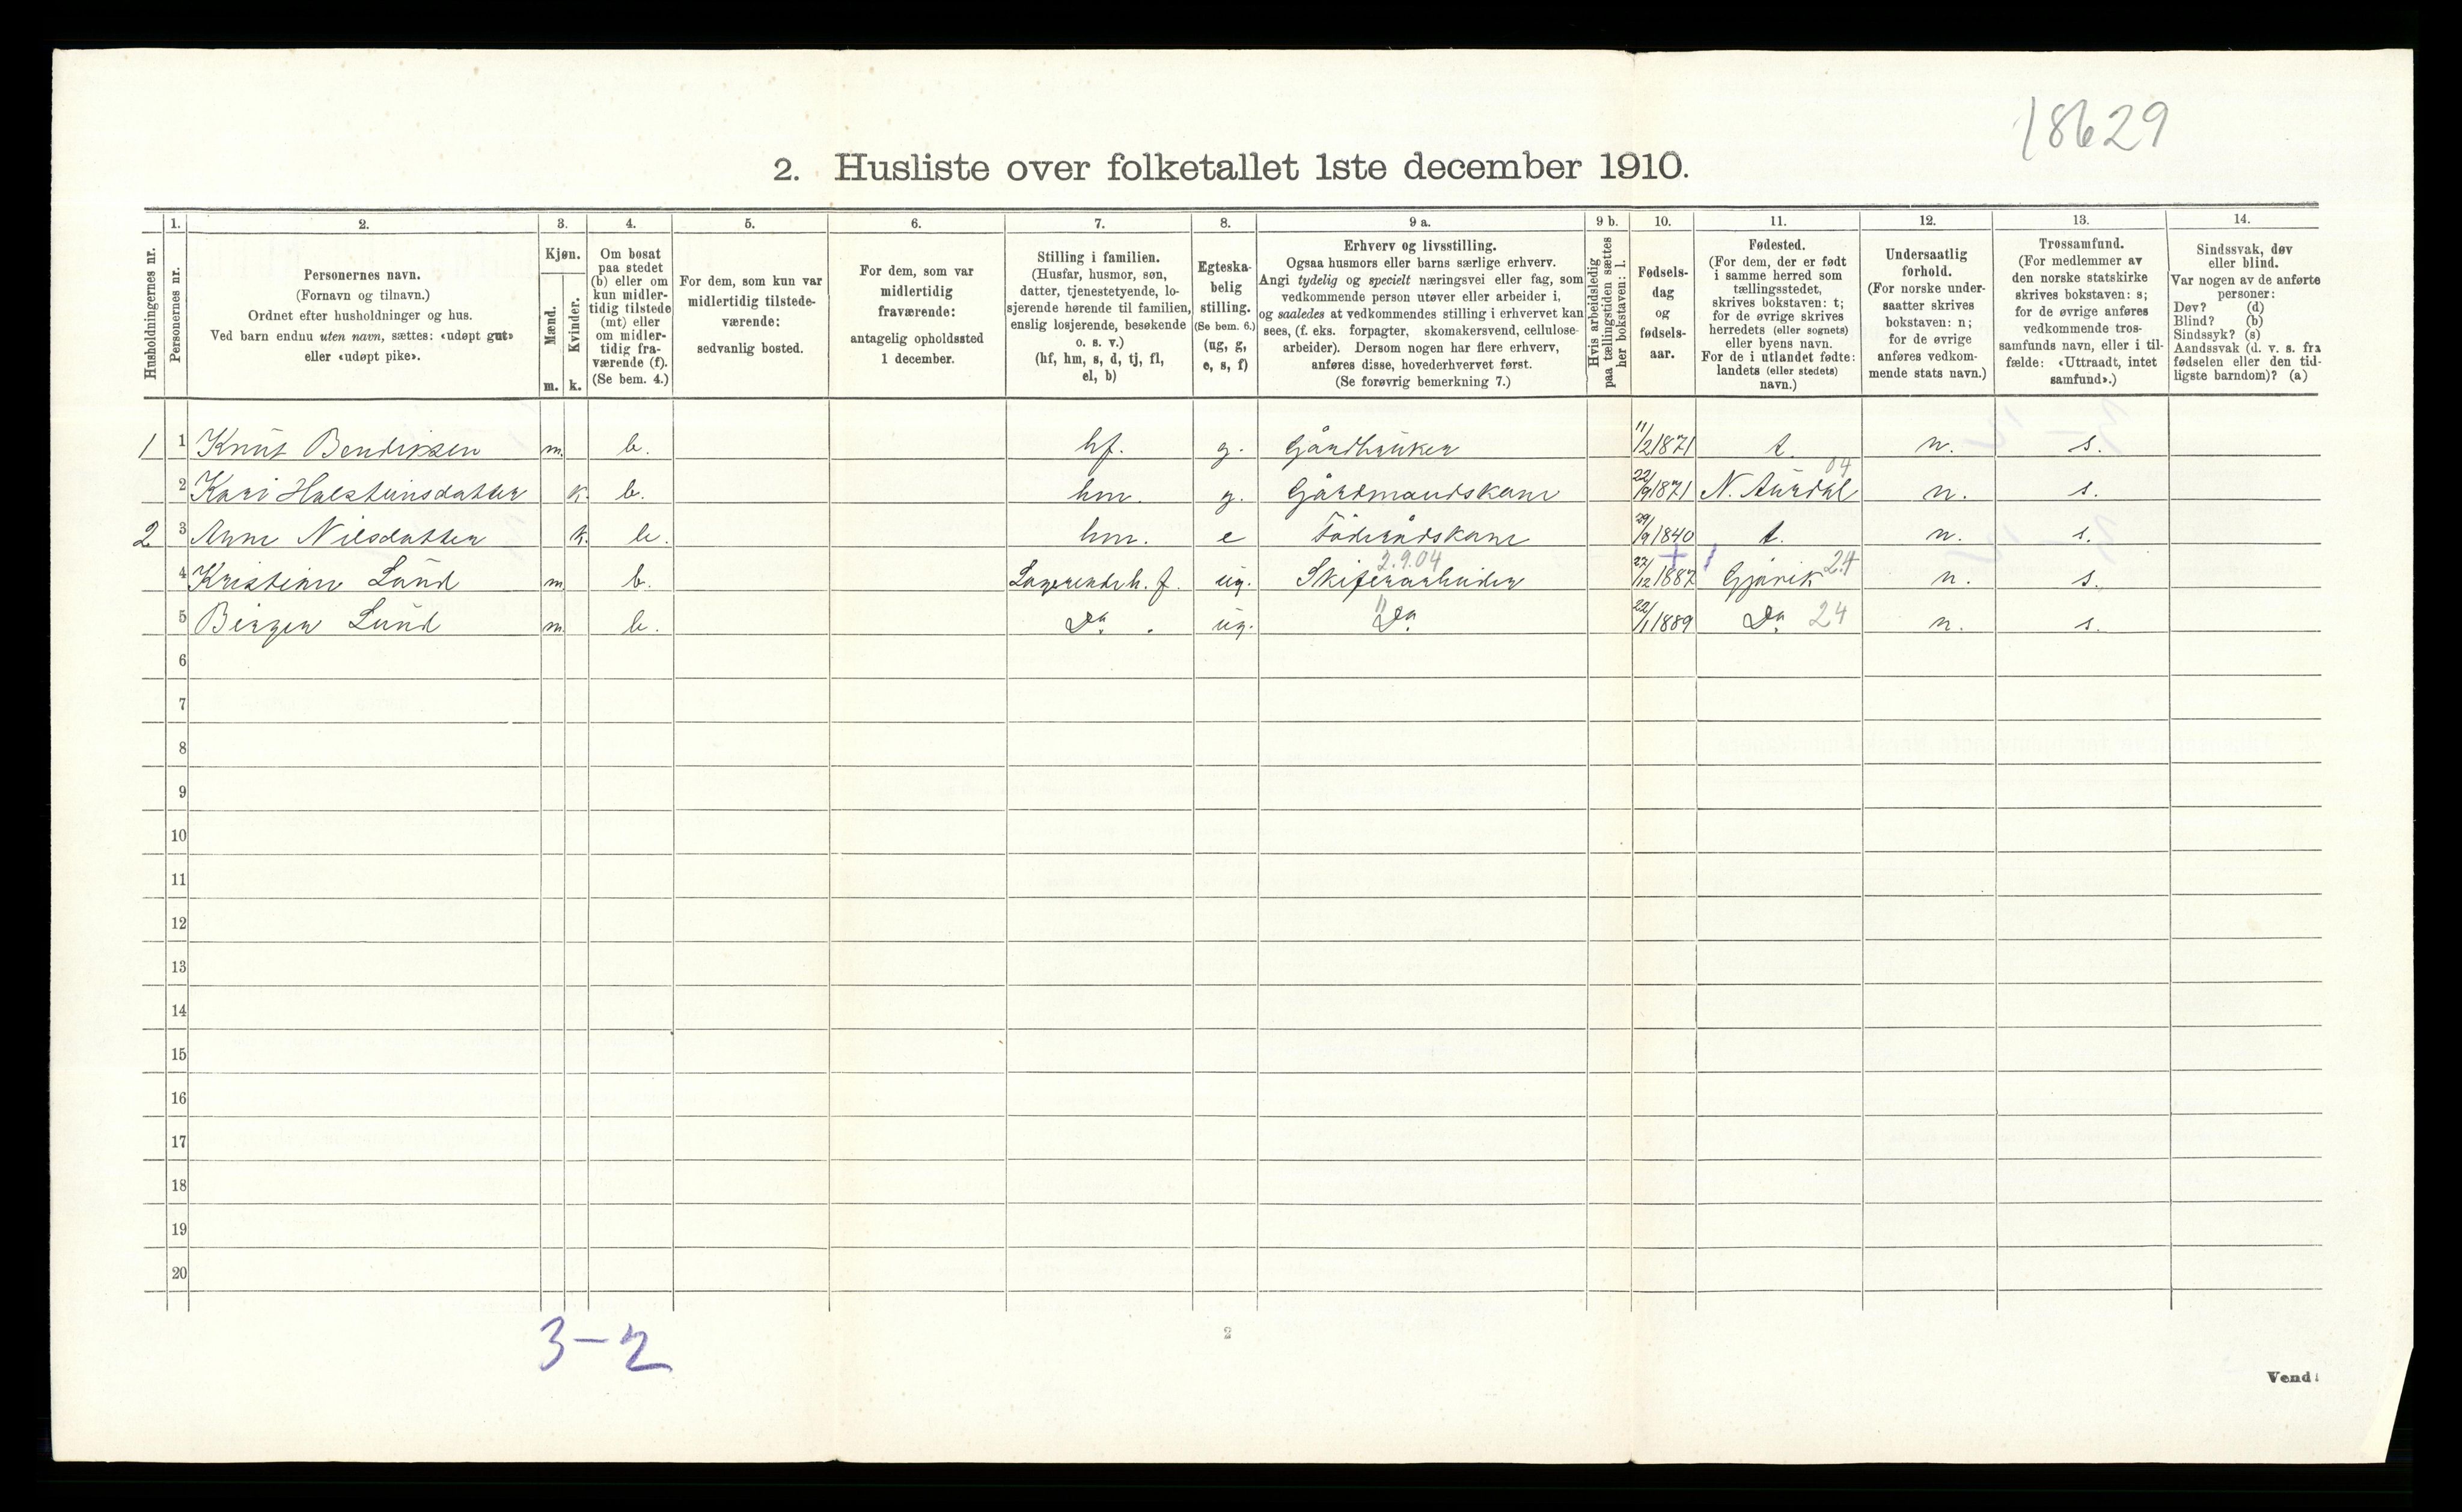 18629
2. Husliste over folketallet 1ste december 1910.
Husholdningernes nr.
1.
Personernes nr.
2.
Personernes navn.
(Fornavn og tilnavn.)
Ordnet efter husholdninger og hus.
Ved barn endnu uten navn, sættes: «udøpt gut»
eller «udøpt pike».
3.
Kjøn.
Mænd.
m.
Kvinder.
k.
4.
Om bosat
paa stedet
(b) eller om
kun midler-
tidig tilstede
(mt) eller
om midler-
tidig fra-
værende (f).
(Se bem. 4.)
5.
For dem, som kun var
midlertidig tilstede-
værende:
sedvanlig bosted.
6.
For dem, som var
midlertidig
fraværende:
antagelig opholdssted
1 december.
7.
Stilling i familien.
(Husfar, husmor, søn,
datter, tjenestetyende, lo-
sjerende hørende til familien,
enslig losjerende, besøkende
o. s. v.)
(hf, hm, s, d, tj, fl,
el, b)
8.
Egteska-
belig
stilling.
(Se bem. 6.)
(ug, g,
e, s, f)
9 a.
Erhverv og livsstilling.
Ogsaa husmors eller barns særlige erhverv.
Angi tydelig og specielt næringsvei eller fag, som
vedkommende person utøver eller arbeider i,
og saaledes at vedkommendes stilling i erhvervet kan
sees, (f. eks. forpagter, skomakersvend, cellulose-
arbeider). Dersom nogen har flere erhverv,
anføres disse, hovederhvervet først.
(Se forøvrig bemerkning 7.)
9 b.
Hvis arbeidsledig
paa tællingstiden sættes
her bokstaven: l.
10.
Fødsels-
dag
og
fødsels-
aar.
11.
Fødested.
(For dem, der er født
i samme herred som
tællingsstedet,
skrives bokstaven: t;
for de øvrige skrives
herredets (eller sognets)
eller byens navn.
For de i utlandet fødte:
landets (eller stedets)
navn.)
12.
Undersaatlig
forhold.
(For norske under-
saatter skrives
bokstaven: n;
for de øvrige
anføres vedkom-
mende stats navn.)
13.
Trossamfund.
(For medlemmer av
den norske statskirke
skrives bokstaven: s;
for de øvrige anføres
vedkommende tros-
samfunds navn, eller i til-
fælde: «Uttraadt, intet
samfund».)
14.
Sindssvak, døv
eller blind.
Var nogen av de anførte
personer:
Døv? (d)
Blind? (b)
Sindssyk? (s)
Aandssvak (d. v. s. fra
fødselen eller den tid-
ligste barndom)? (a)
1 1 Knut Bendiksen m. b. hf. g. Gårdbruker 11/2 1871 t. n. s.
04
2 Kari Halsteinsdatter k. b. hm. g. Gårdmandskone 22/9 1871 N. Aurdal n. s.
2 3 Anne Nilsdatter k. b. hm. e Föderådskone 29/9 1840 t. n. s.
2.9.04 + 1
4 Kristian Lund m. b. Logerende h. f. ug. Skiferarbeider 27/12 1887 Gjøvik 24 n. s.
5 Birger Lund m. b. Do. ug. " Do. 22/1 1889 Do. 24 n. s.
6
7
8
9
10
11
12
13
14
15
16
17
18
19
20
3-2
2
Vend!